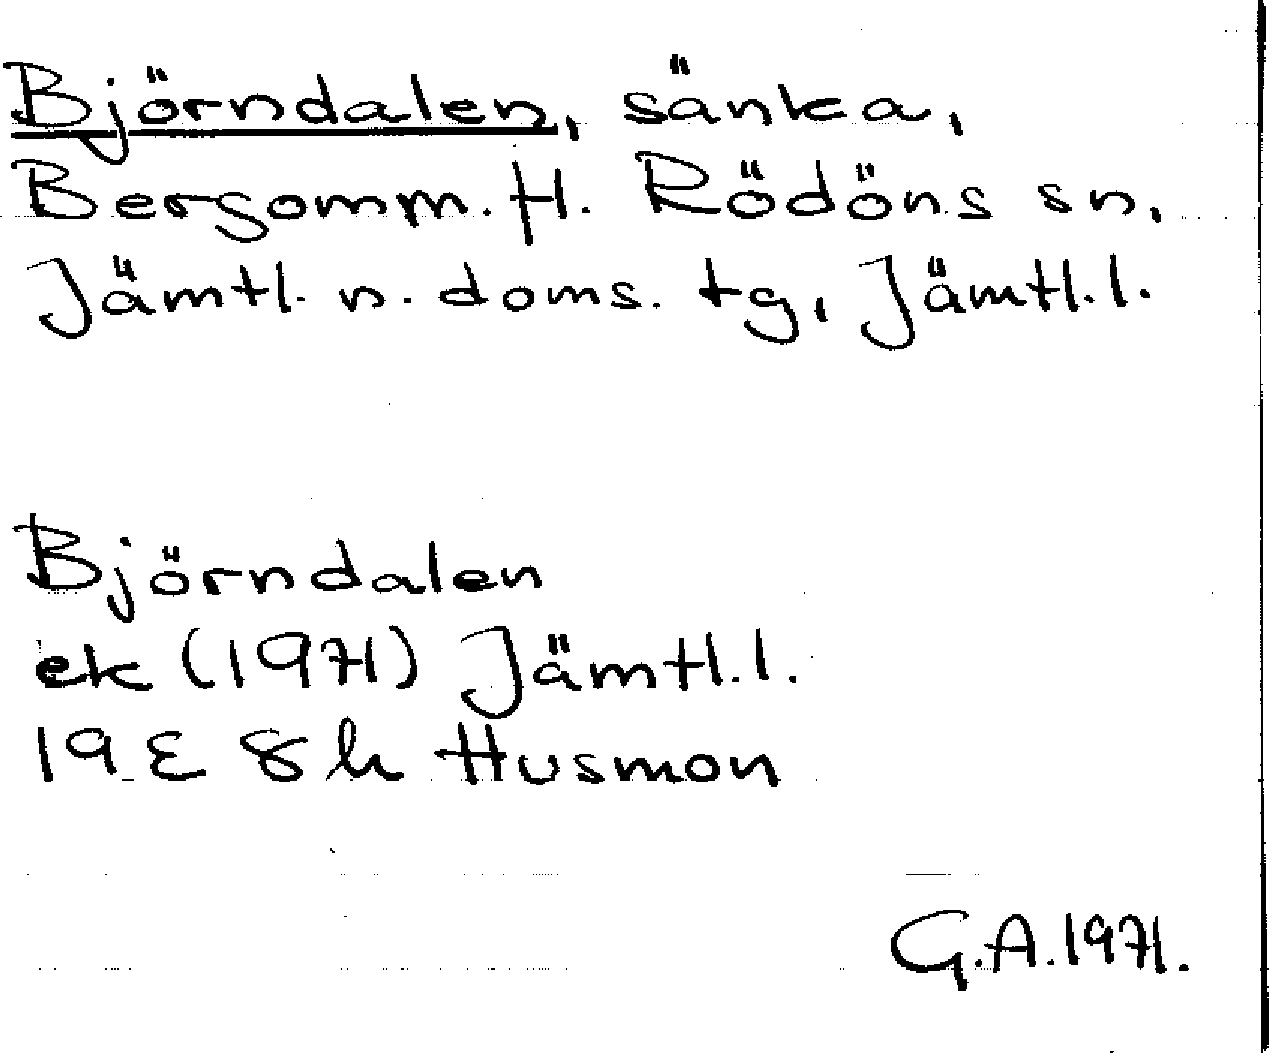 Björndalen, sänka,
Bergomm. H. Rödöns sn,
Jämtl. n. doms. tg, Jämtl.l.
Björndalen
ek (1971) Jämtl.l.
19 E 8 h Husmon
G.A.1971.